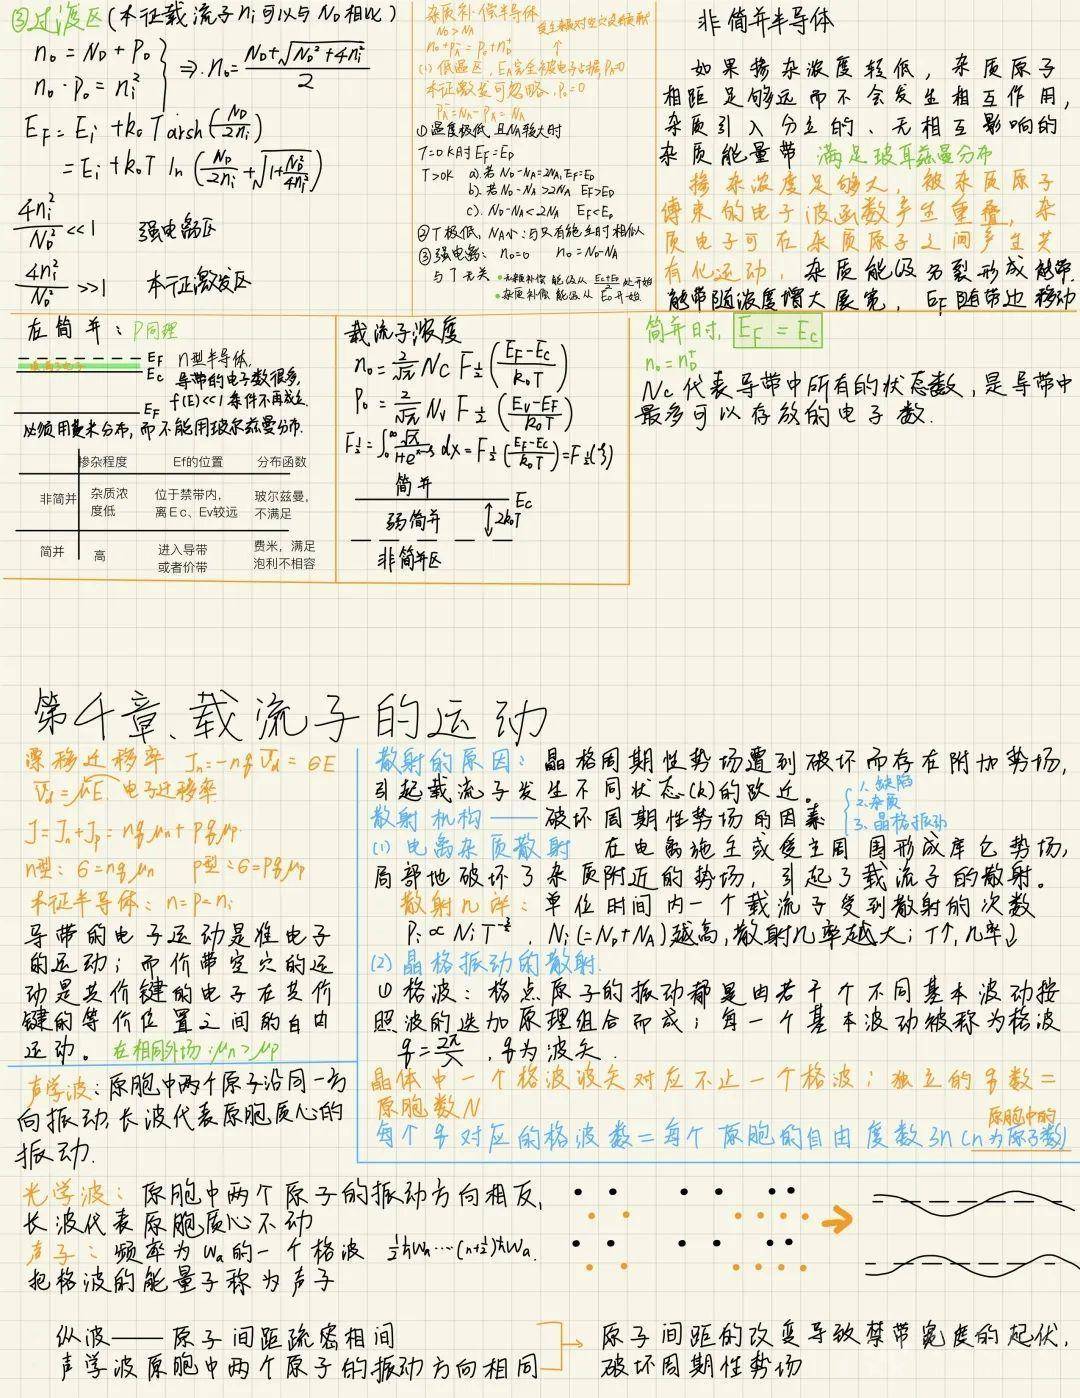 ③过渡区(本征载流子ni可以与ND相比)
n₀=ND+P₀
n₀·P₀=ni²
⇒ n₀=(ND+√(ND²+4ni²))/2
EF=Ei+k₀T arsh(ND/2ni)
=Ei+k₀T ln(ND/2ni+√(1+ND²/4ni²))
4ni²/ND²<<1 强电离区
4ni²/ND²>>1 本征激发区
杂质补偿半导体
ND>NA
n₀+PA⁻=P₀+nD⁺
(1)低温区,EA完全被电子占据PA=0
本征激发可忽略,P₀=0
PA⁻=NA-PA=NA
①温度极低,且NA较大时
T=0K时EF=ED
T>0K a)若ND-NA=2NA,EF=ED
b)若ND-NA>2NA EF>ED
c).ND-NA<2NA EF<ED
②T极低,NA小:与只有施主时相似
③强电离: n₀=ND-NA
与T无关
非简并半导体
如果掺杂浓度较低,杂质原子
相距足够远而不会发生相互作用,
杂质引入分立的、无相互影响的
杂质能量带 满足玻耳兹曼分布
掺杂浓度足够大,被杂质原子
缚束的电子波函数产生重叠,杂
质电子可在杂质原子之间产生共
有化运动,杂质能级分裂形成能带.
能带随浓度增大展宽,EF随带边移动
在简并:P同理
EF n型半导体,
Ec 导带的电子数很多,
f(E)<<1条件不再成立
EF
必须用费米分布,而不能用玻尔兹曼分布.
掺杂程度 Ef的位置 分布函数
非简并 杂质浓度低 位于禁带内,离Ec、Ev较远 玻尔兹曼,不满足
简并 高 进入导带或者价带 费米,满足泡利不相容
载流子浓度
n₀=2/√π Nc F½((EF-Ec)/k₀T)
P₀=2/√π Nv F½((Ev-EF)/k₀T)
F½=∫₀^∞ √x/(1+e^(x-ξ)) dx=F½((EF-Ec)/k₀T)=F½(ξ)
简并
Ec
弱简并 2k₀T
非简并区
简并时,EF=Ec
n₀=nD⁺
Nc代表导带中所有的状态数,是导带中
最多可以存放的电子数.
第4章、载流子的运动
漂移迁移率 Jn=-nqV̄d=σE
V̄d=μE. 电子迁移率
J=Jn+Jp=nqμn+pqμp.
n型:σ=nqμn p型:σ=pqμp
本征半导体:n=p=ni
导带的电子运动是准电子
的运动;而价带空穴的运
动是共价键的电子在共价
键的等价位置之间的自由
运动。在相同外场:μn>μp
散射的原因:晶格周期性势场遭到破坏而存在附加势场,
引起载流子发生不同状态(k)的跃迁。
散射机构——破坏周期性势场的因素
1.缺陷
2.杂质
3.晶格振动
(1)电离杂质散射 在电离施主或受主周围形成库仑势场,
局部地破坏了杂质附近的势场,引起了载流子的散射。
散射几率:单位时间内一个载流子受到散射的次数
Pi∝NiT^(-3/2),Ni(=ND+NA)越高,散射几率越大;T↑,几率↓
(2)晶格振动的散射.
①格波:格点原子的振动都是由若干个不同基本波动按
照波的迭加原理组合而成;每一个基本波动被称为格波
q=2π/λ,q为波矢.
晶体中一个格波波矢对应不止一个格波;独立的q数=
原胞数N
每个q对应的格波数=每个原胞的自由度数3n(n为原胞中的原子数)
声学波:原胞中两个原子沿同一方
向振动,长波代表原胞质心的
振动.
光学波:原胞中两个原子的振动方向相反,
长波代表原胞质心不动
声子:频率为ωa的一个格波 ½ħωa…(n+½)ħωa.
把格波的能量子称为声子
纵波——原子间距疏密相间
声学波原胞中两个原子的振动方向相同
原子间距的改变导致禁带宽度的起伏,
破坏周期性势场